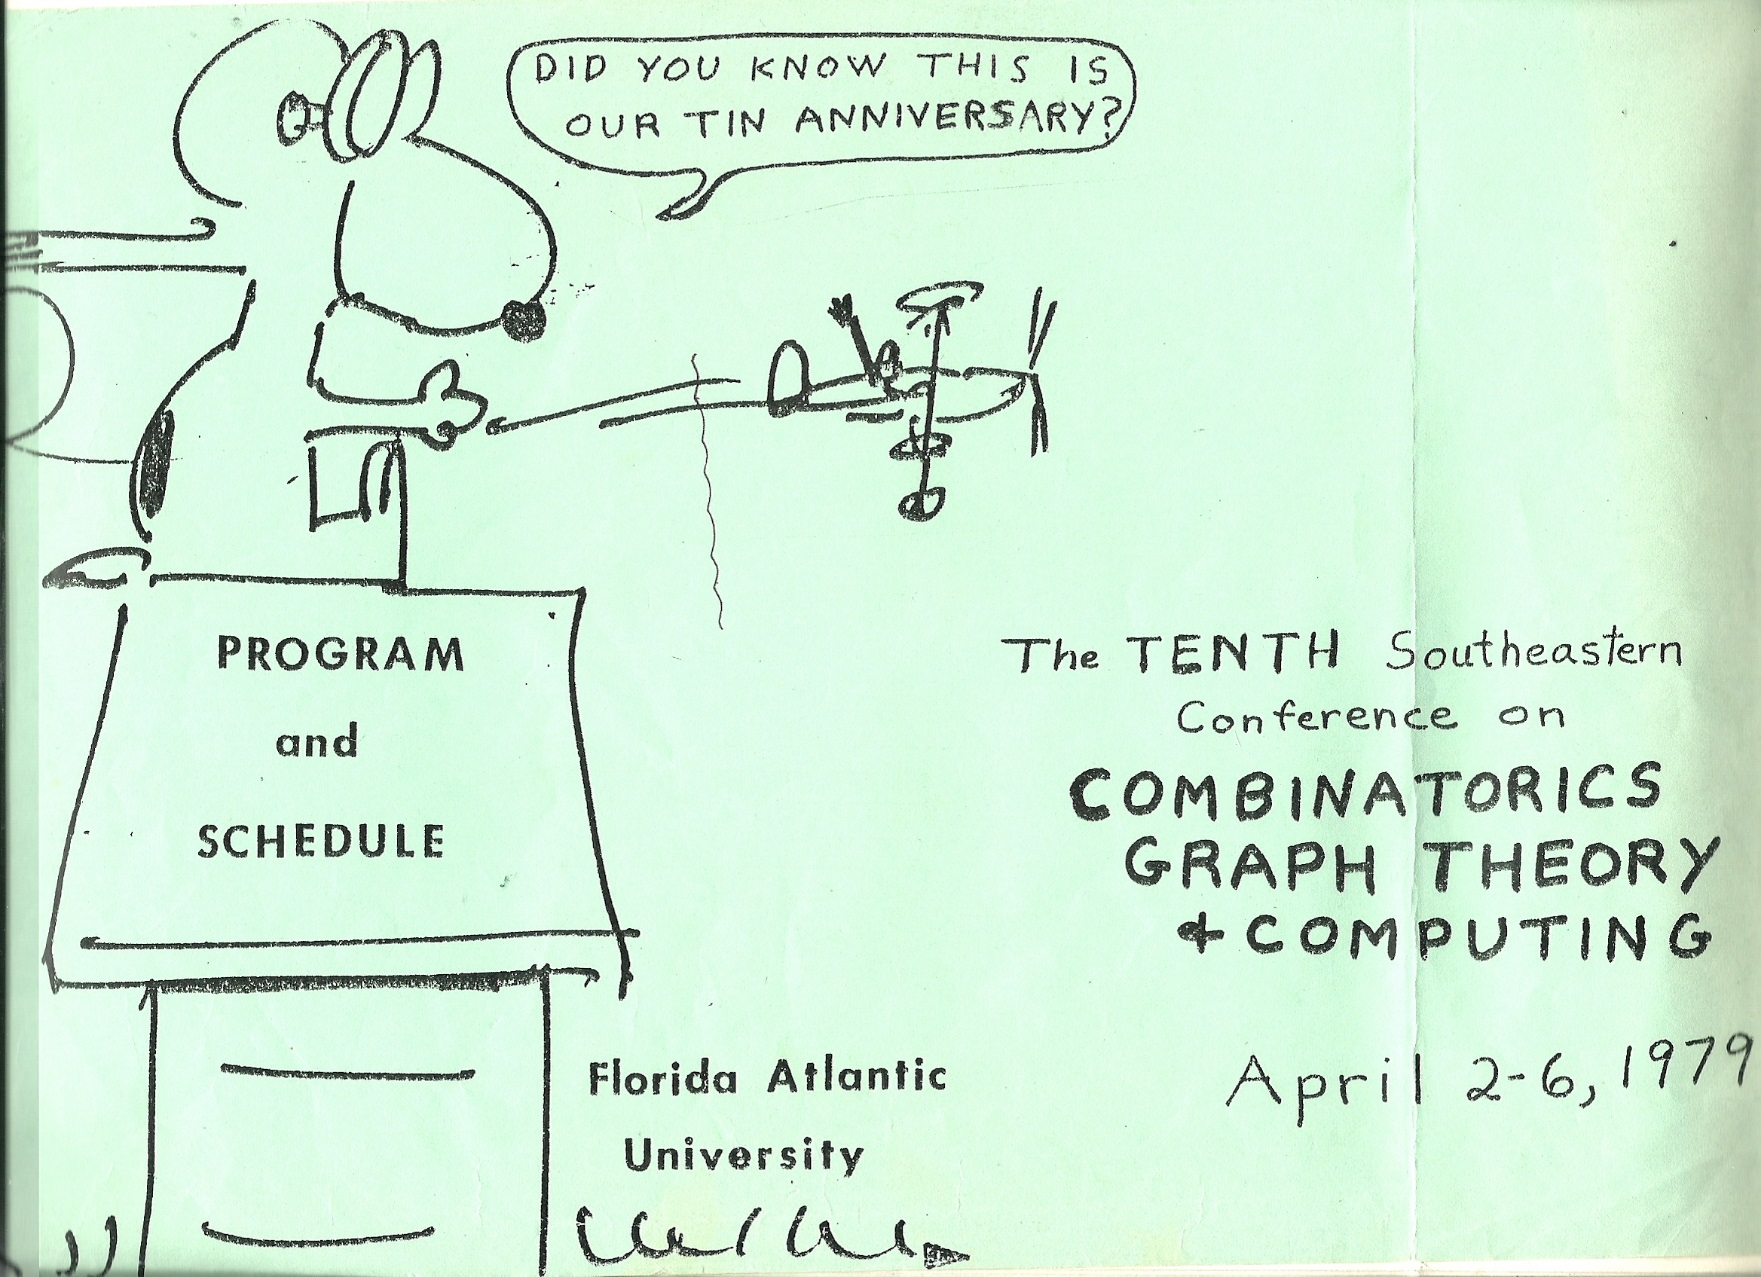 DID YOU KNOW THIS IS
OUR TIN ANNIVERSARY?
PROGRAM
and
SCHEDULE
The TENTH Southeastern
Conference on
COMBINATORICS
GRAPH THEORY
& COMPUTING
April 2-6, 1979
Florida Atlantic
University